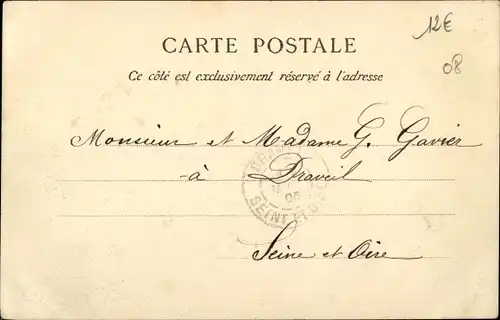 12€
08
CARTE POSTALE
Ce côté est exclusivement réservé à l'adresse
Monsieur et Madame G. Gavier
-à Draveil
05
SEINE ET OISE
Seine et Oise